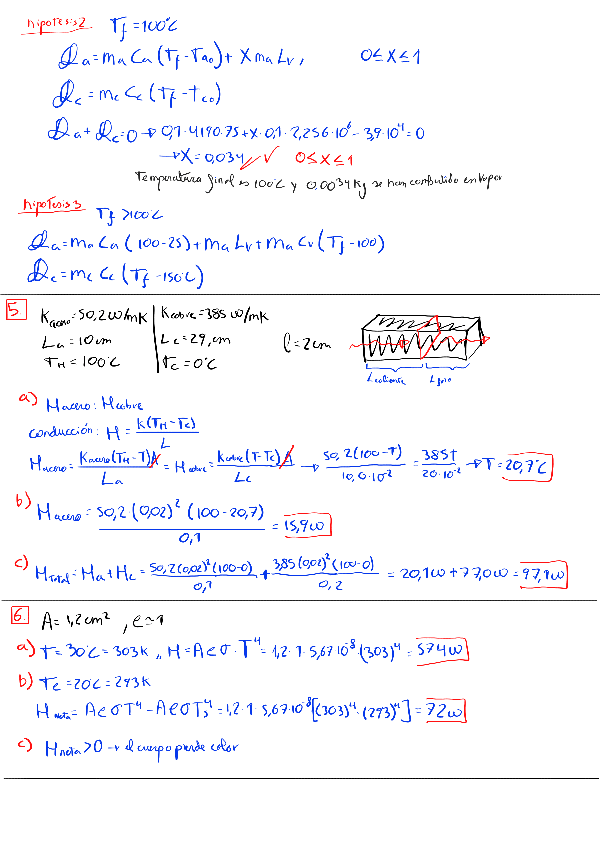 hipotesis 2 Tf = 100°C
Qa = ma Ca (Tf - Tao) + X ma Lv, 0 ≤ X ≤ 1
Qc = mc Cc (Tf - tco)
Qa + Qc = 0 → 0,1 · 4190 · 75 + X · 0,1 · 2,256 · 10⁶ - 3,9 · 10⁴ = 0
→ X = 0,034 ✓ 0 ≤ X ≤ 1
Temperatura final es 100°C y 0,0034 Kg se han convertido en vapor
hipotesis 3 Tf > 100°C
Qa = ma Ca (100 - 25) + ma Lv + ma Cv (Tf - 100)
Qc = mc Cc (Tf - 150°C)
5 Kacero = 50,2 W/mK Kcobre = 385 W/mK
La = 10 cm Lc = 20, cm l = 2 cm
TH = 100°C Tc = 0°C
Lcaliente Lfrio
a) Hacero = Hcobre
conducción: H = K(TH - Tc) / L
Hacero = Kacero (TH - T) A / La = Hcobre = Kcobre (T - Tc) A / Lc → 50,2 (100 - T) / 10,0 · 10⁻² = 385 T / 20 · 10⁻² → T = 20,7°C
b) Hacero = 50,2 (0,02)² (100 - 20,7) / 0,1 = 15,9 W
c) HTotal = Ha + Hc = 50,2 (0,02)² (100 - 0) / 0,1 + 385 (0,02)² (100 - 0) / 0,2 = 20,1 W + 77,0 W = 97,1 W
6. A = 1,2 cm², e ≈ 1
a) T = 30°C = 303 K ,, H = A e σ · T⁴ = 1,2 · 1 · 5,67 · 10⁻⁸ · (303)⁴ = 574 W
b) Tc = 20°C = 293 K
Hneta = A e σ T⁴ - A e σ Ts⁴ = 1,2 · 1 · 5,67 · 10⁻⁸ [(303)⁴ - (293)⁴] = 72 W
c) Hneta > 0 → el cuerpo pierde calor